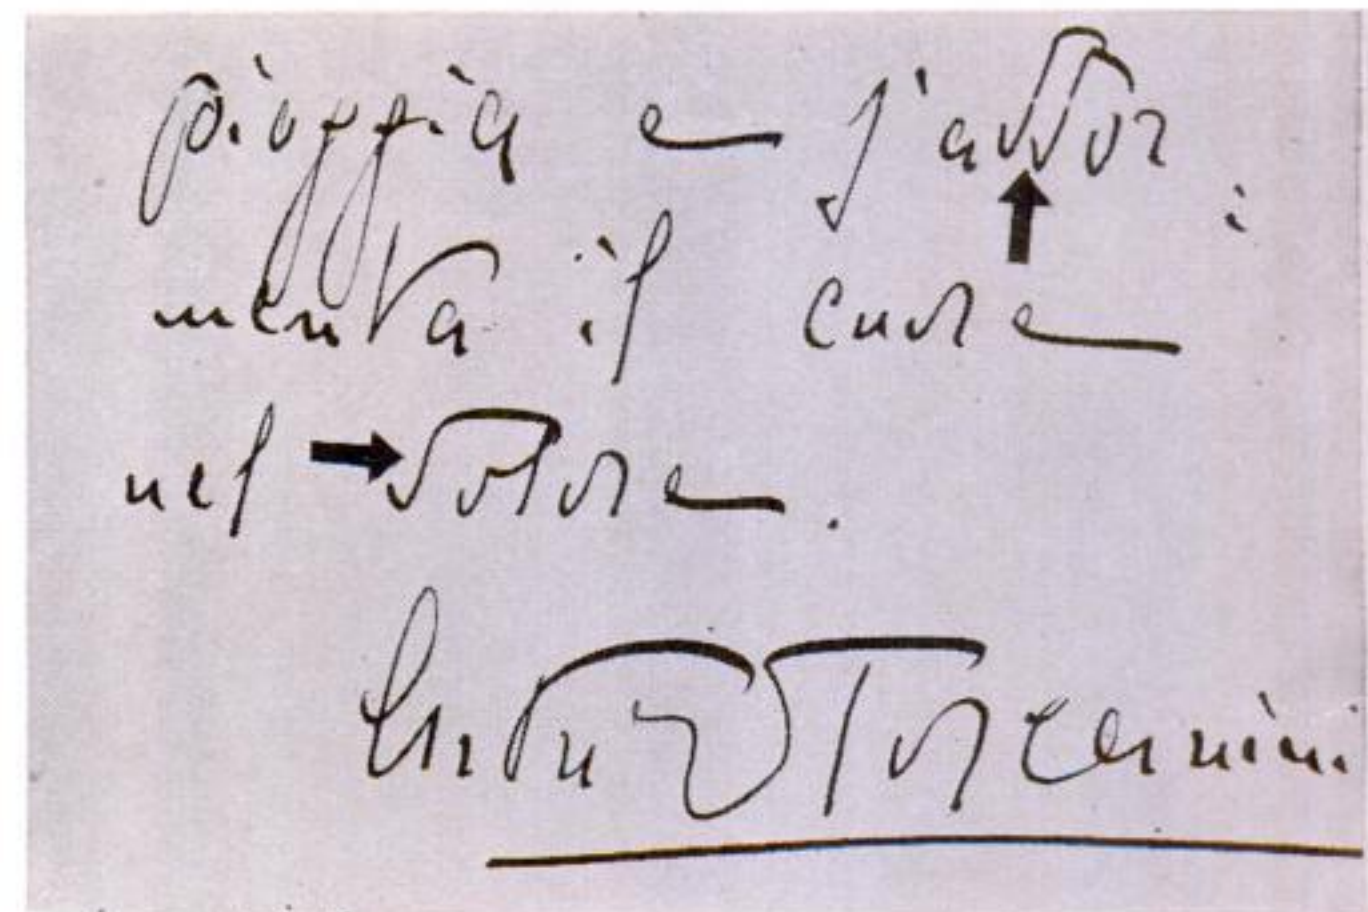 pioggia e s'addor:
menta il cuore
nel dolore.
Arturo Toscanini